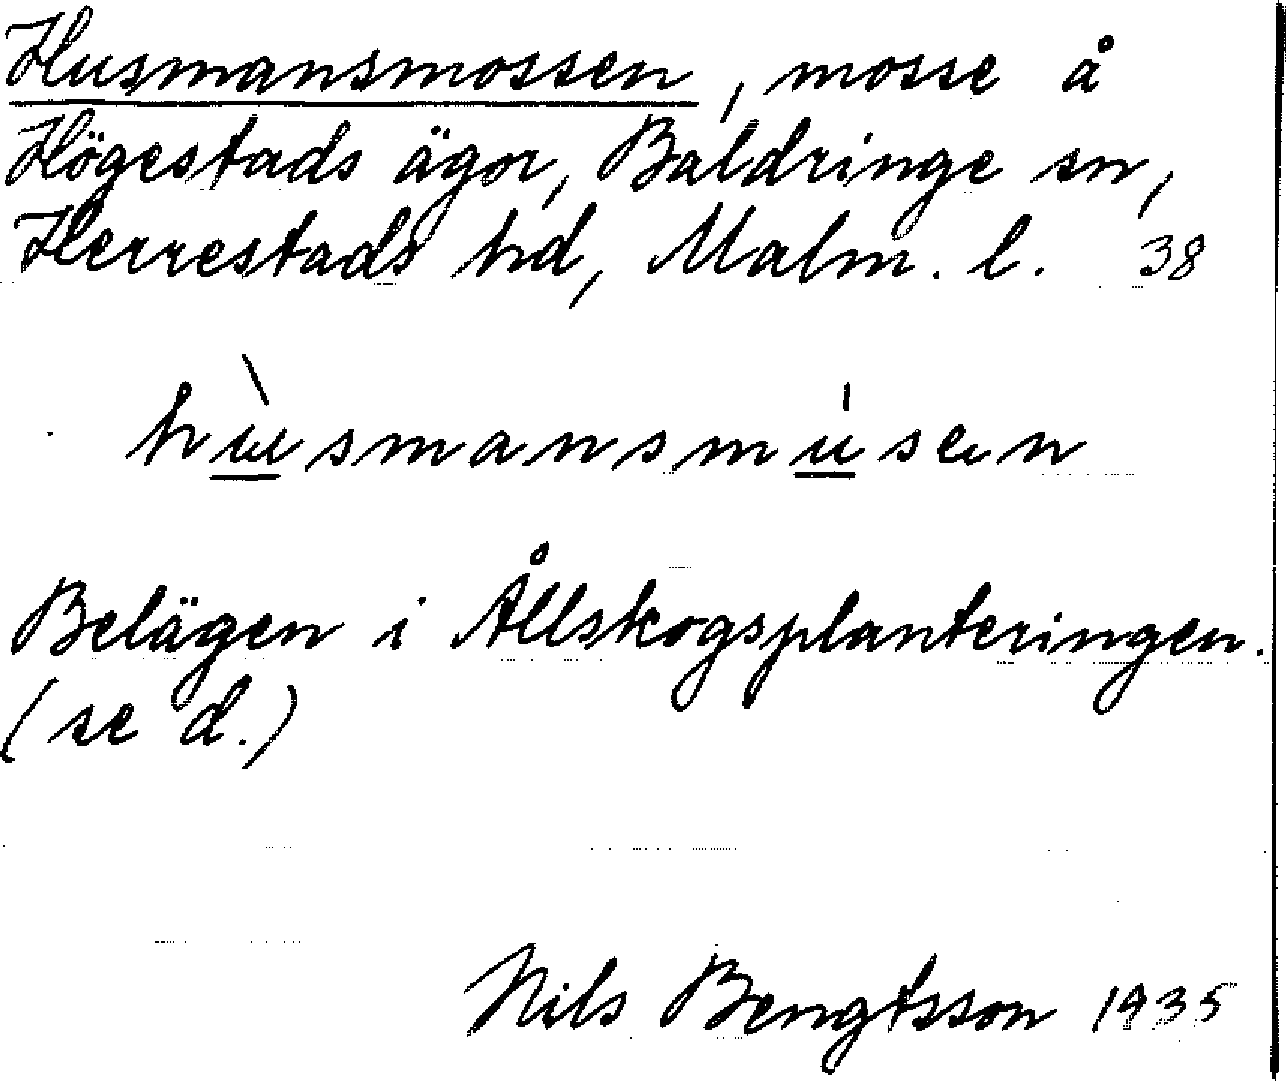 Husmansmossen, mosse å
Högestads ägor, Baldringe sn,
Herrestads hd, Malm. l. 38
Belägen i Ållskogsplanteringen.
(se d.)
Nils Bengtsson 1935